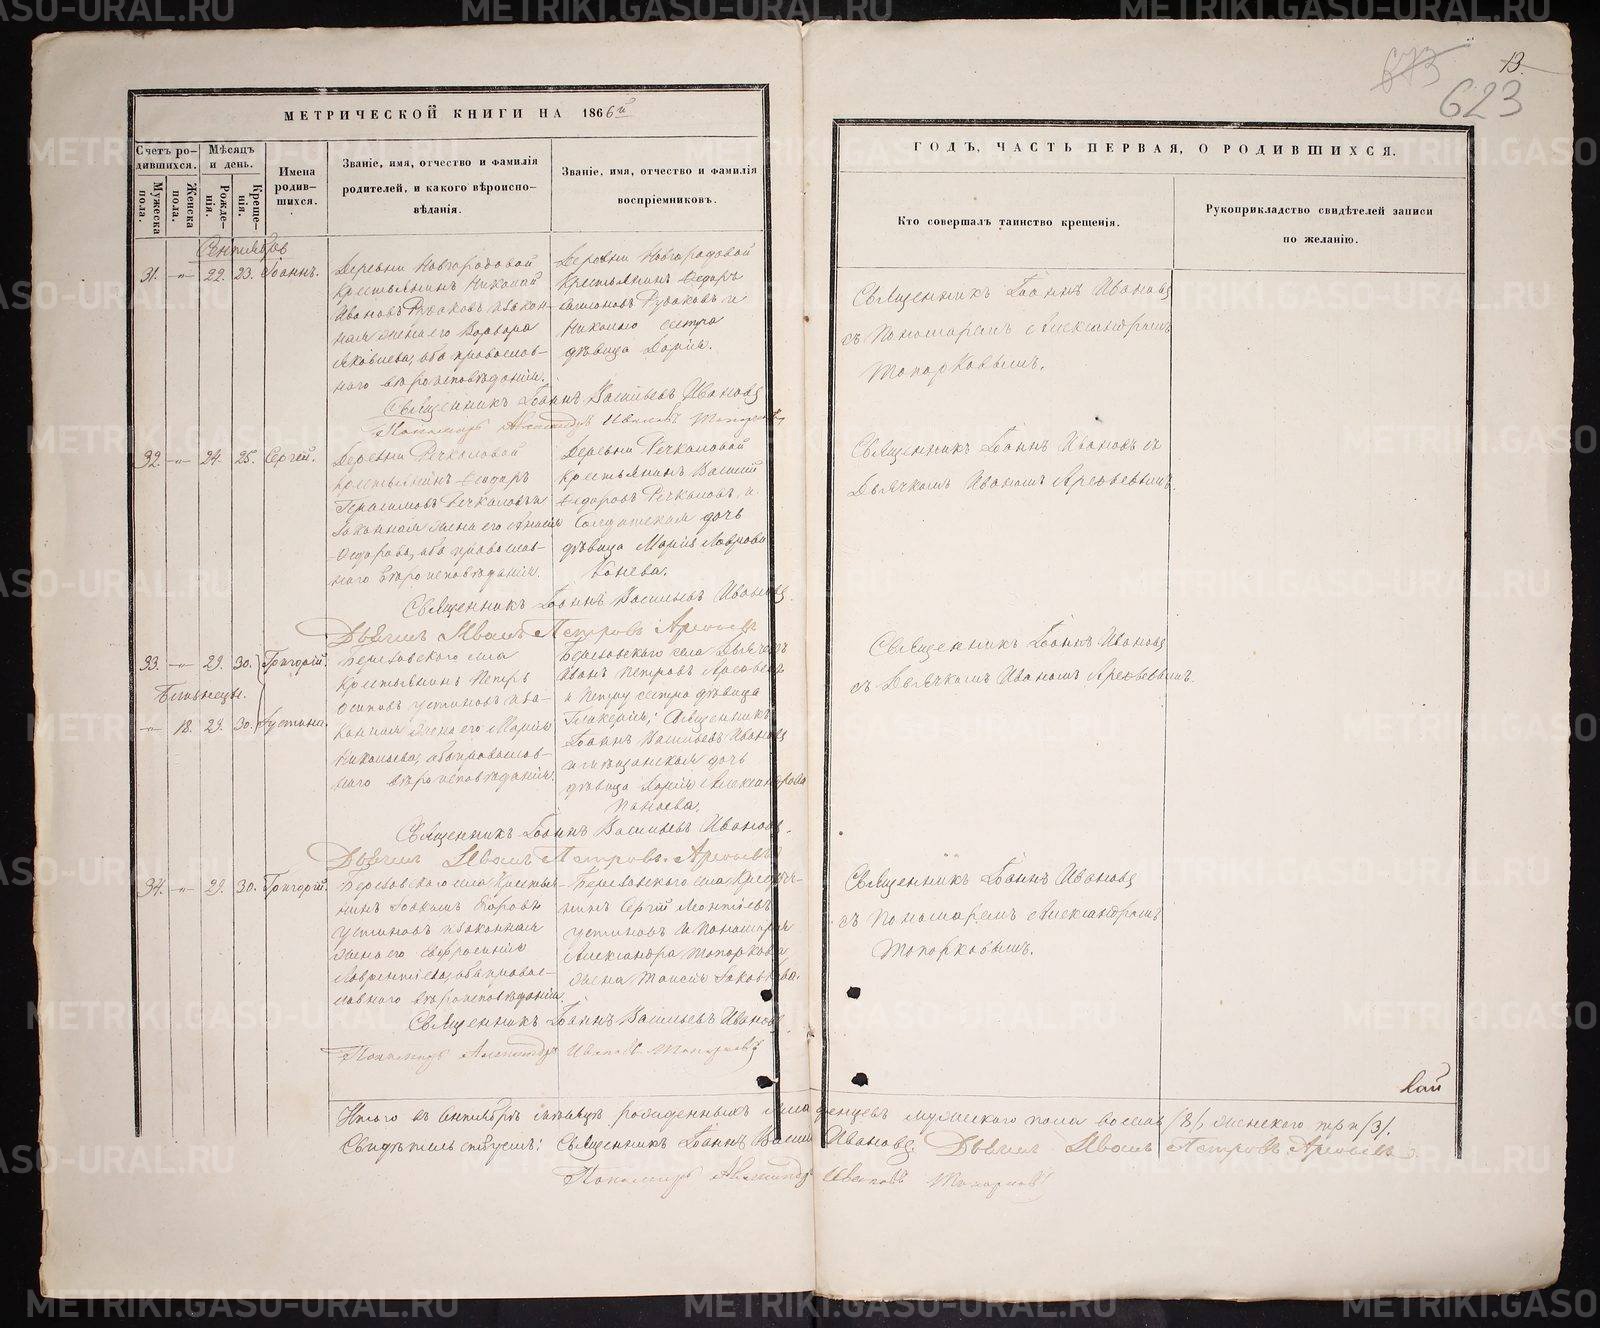 673
13.
623
МЕТРИЧЕСКОЙ КНИГИ НА 1866й
Счетъ ро-
дившихся.
Мѣсяцъ
и день.
Мужеска
пола.
Женска
пола.
Рожде-
нія.
Креще-
нія.
Имена
родив-
шихся.
Званіе, имя, отчество и фамилія
родителей, и какого вѣроиспо-
вѣданія.
Званіе, имя, отчество и фамилія
воспріемниковъ.
ГОДЪ, ЧАСТЬ ПЕРВАЯ, О РОДИВШИХСЯ.
Кто совершалъ таинство крещенія.
Рукоприкладство свидѣтелей записи
по желанію.
Сентябрь
31. -„- 22. 23. Іоаннъ.
Деревни Новгородовой
Крестьянинъ Николай
Ивановъ Рудаковъ и закон-
ная жена его Варвара
Яковлева, оба православ-
наго вѣроисповѣданія.
Деревни Новгородовой
Крестьянинъ Ѳедоръ
Рудаковъ и
Николаю сестра
дѣвица Дарія.
Священникъ Іоаннъ Ивановъ
съ Пономаремъ Александромъ
Топорковымъ.
Священникъ Іоаннъ Васильевъ Ивановъ
Пономарь Александръ Ивановъ Топорковъ
32. -„- 24. 25. Сергей.
Деревни Речкаловой
Крестьянинъ Ѳедоръ
Герасимовъ Речкаловъ и
Законная жена его Анисія
Ѳедорова, оба православ-
наго вѣроисповѣданія.
Деревни Речкаловой
Крестьянинъ Василій
Ѳедоровъ Речкаловъ, и
Солдатская дочь
дѣвица Марія Лаврова
Конева.
Священникъ Іоаннъ Ивановъ съ
Дьячкомъ Иваномъ Арефьевымъ.
Священникъ Іоаннъ Васильевъ Ивановъ.
Дьячекъ Иванъ Петровъ Арефьевъ
33. -„- 29. 30. Григорій.
Близнецы.
-„- 18. 29. 30. Іустина.
Березовскаго села
Крестьянинъ Петръ
Осиповъ Устиновъ и за-
конная жена его Марія
Николаева, оба православ-
наго вѣроисповѣданія.
Березовскаго села Дьячекъ
Иванъ Петровъ Арефьевъ
и Петру сестра дѣвица
Гликерія; Священникъ
Іоаннъ Васильевъ Ивановъ
и мѣщанская дочь
дѣвица Марія Александрова
Попаева.
Священникъ Іоаннъ Ивановъ
съ Дьячкомъ Иваномъ Арефьевымъ.
Священникъ Іоаннъ Васильевъ Ивановъ.
Дьячекъ Иванъ Петровъ Арефьевъ
34. -„- 29. 30. Григорій.
Березовскаго села Крестья-
нинъ Іоакимъ
Устиновъ и законная
жена его Евфросинія
Лаврентіева, оба правос-
лавнаго вѣроисповѣданія.
Березовскаго села Крестья-
нинъ Сергій
Устиновъ и Пономаря
Александра Топоркова
жена Таисія Іаковлева.
Священникъ Іоаннъ Ивановъ
съ Пономаремъ Александромъ
Топорковымъ.
Священникъ Іоаннъ Васильевъ Ивановъ
Пономарь Александръ Ивановъ Топорковъ
Итого въ Сентябрѣ мѣсяцѣ рожденныхъ младенцевъ мужескаго пола восемь /8/, женскаго три /3/.
Священникъ Іоаннъ Ивановъ. Дьячекъ Иванъ Петровъ Арефьевъ.
Пономарь Александръ Ивановъ Топорковъ